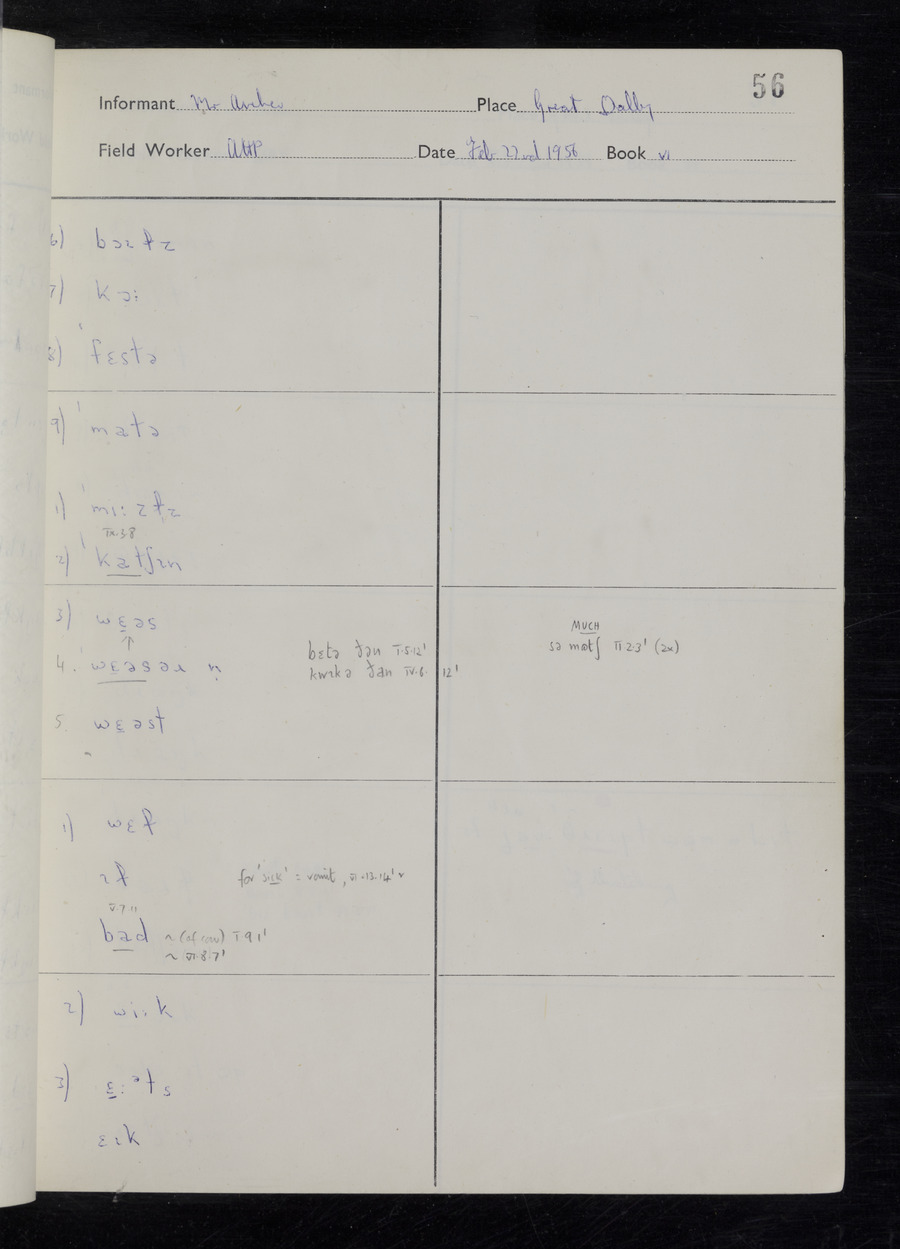 56
Informant Mr Archer Place Great Dalby
Field Worker AHP Date Feb 22nd 1956 Book VI
6) bɔɪɫz
7) kɔː
8) ˈfɛstə
9) ˈmatə
1) ˈmiːzɫz
IX.3.8
2) ˈkatʃɪn
3) wɛəs
↑
MUCH
4. ˈwɛəsəɹ n̩ bɛtə ðən V.5.12' sə mʊtʃ VI.2.3' (2x)
kwɪkə ðan IV.6. 12'
5. wɛəst
1) wɛɫ
ɪɫ for 'sick' = vomit, VI.13.14' ~
V.7.11
bad ~ (of cow) V 9 1'
~ VI.8.7'
2) wiːk
3) ɛːᵊts
ɛɪk